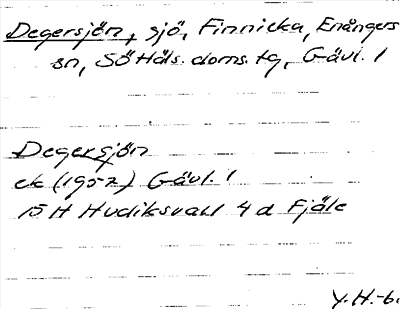 Degersjön, sjö, Finnicka, Enångers
sn, SöHäls. doms. tg, Gävl. l
Degersjön
ek (1952) Gävl. l
15 H Hudiksvall 4 d Fjäle
Y.H.-6.